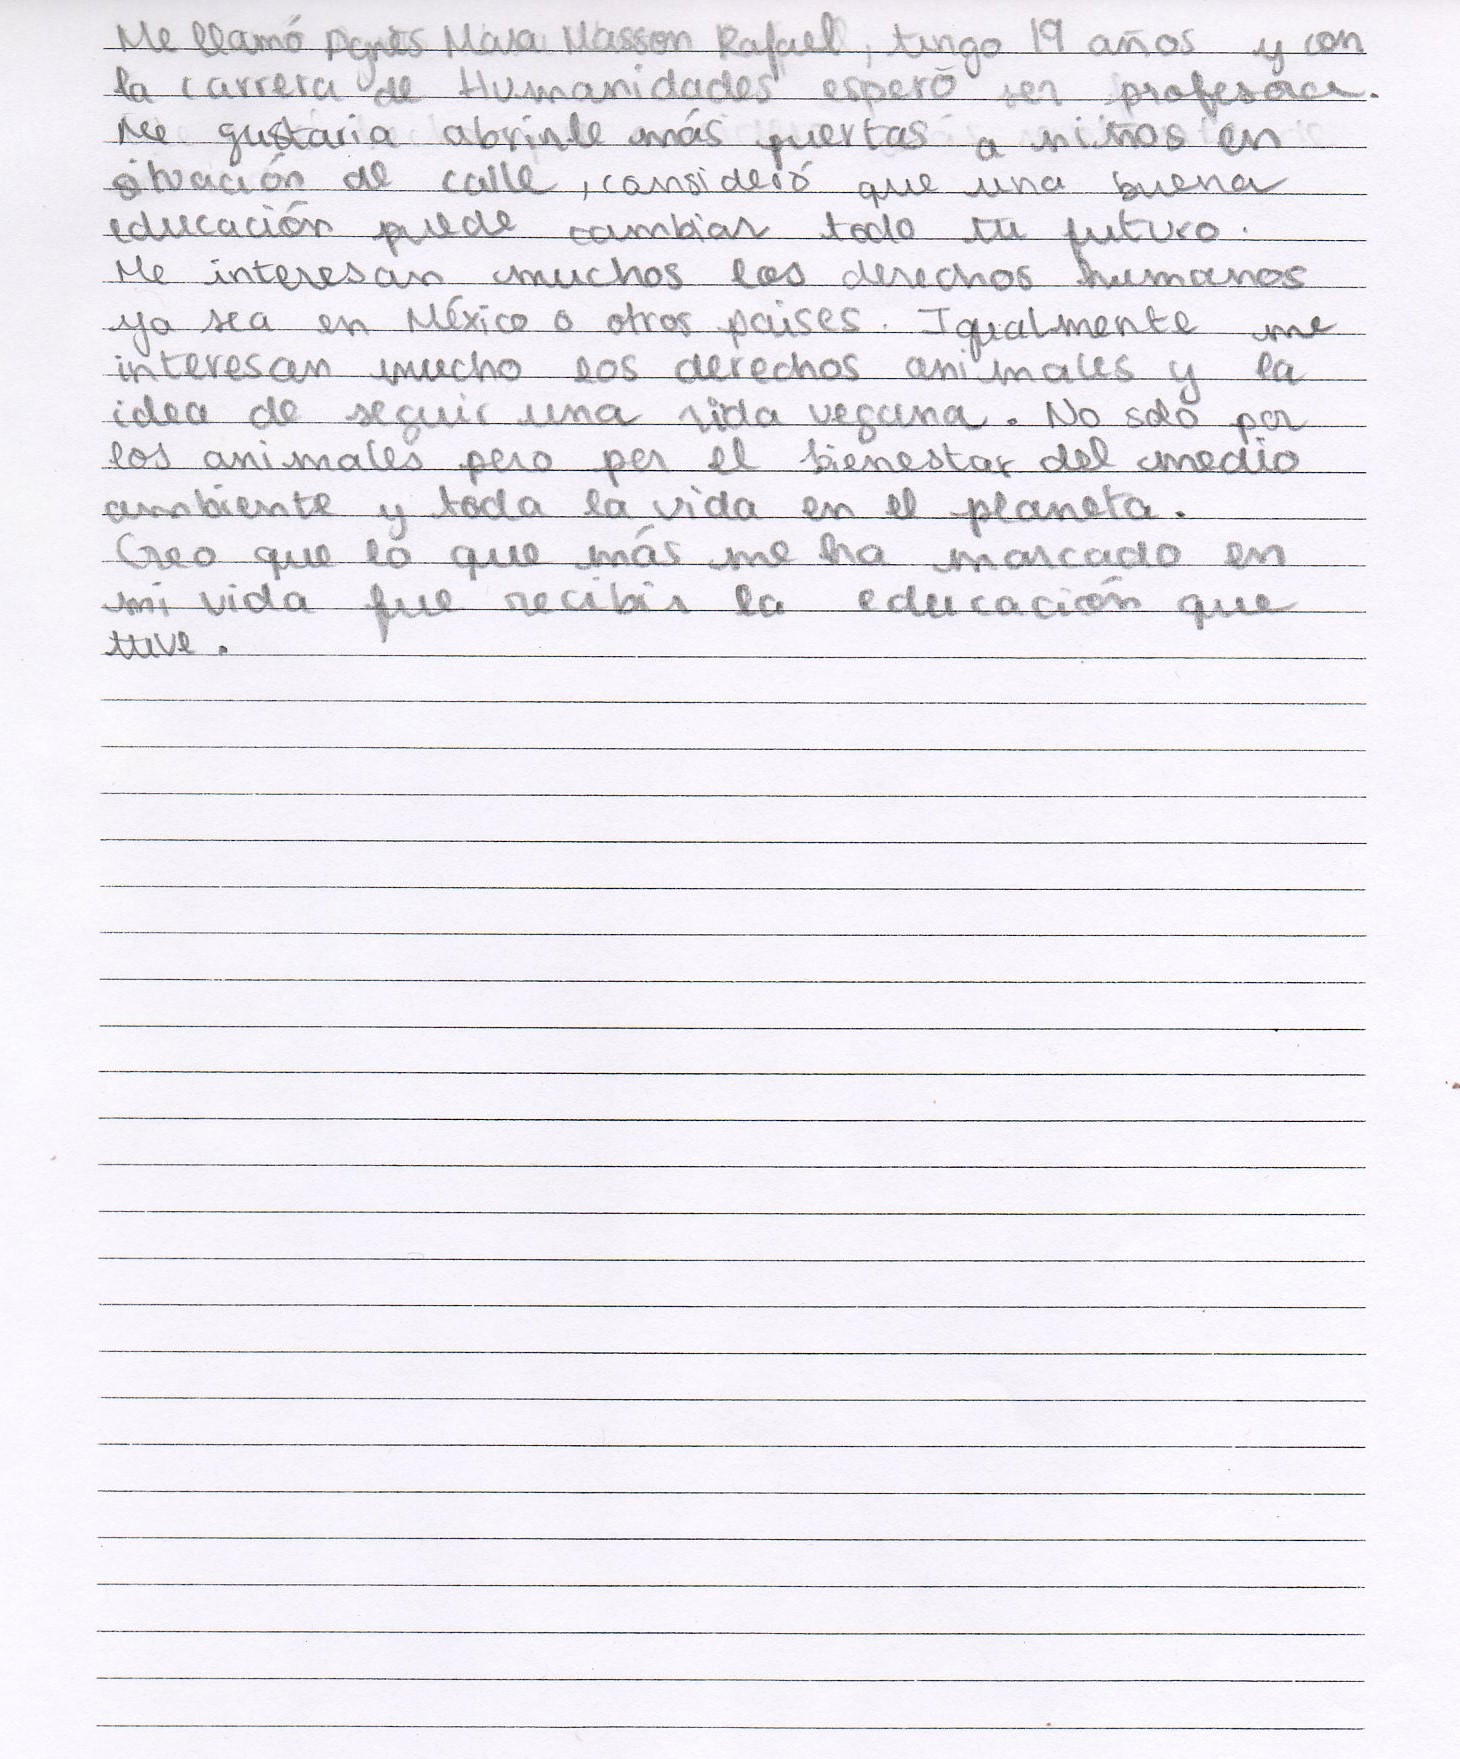 Me llamó Agnes Mara Masson Rafael, tengo 19 años y con
la carrera de Humanidades esperó ser profesora.
Me gustaria abrirle más puertas a niños en
situación de calle, consideró que una buena
educación puede cambiar todo tu futuro.
Me interesan muchos los derechos humanos
ya sea en México o otros paises. Igualmente me
interesan mucho los derechos animales y la
idea de seguir una vida vegana. No solo por
los animales pero por el bienestar del medio
ambiente y toda la vida en el planeta.
Creo que lo que más me ha marcado en
mi vida fue recibir la educación que
tuve.